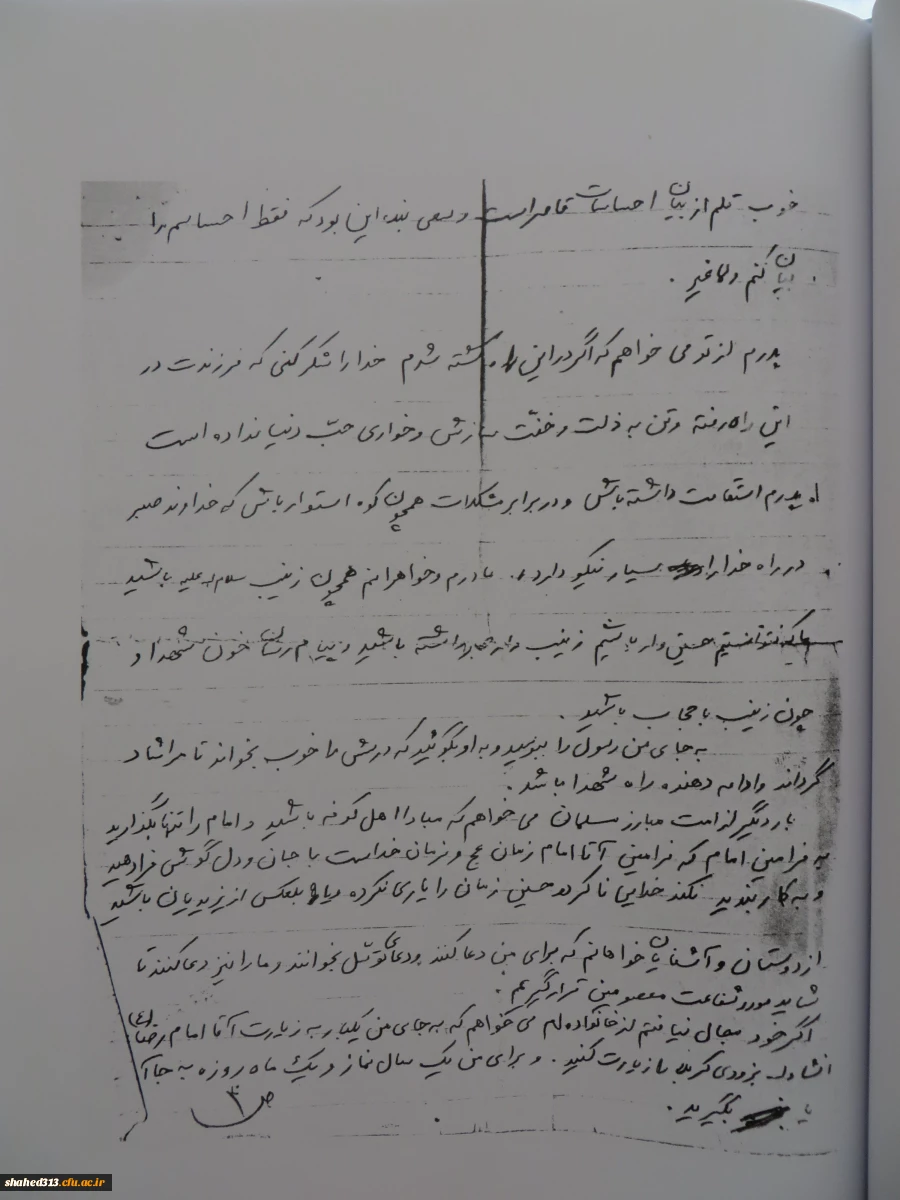 خوب قلم از بیان احساسات قاصر است و سعی بنده این بود که فقط احساسم را
بیان کنم ولاغیر .
پدرم از تو می خواهم که اگر در این راه کشته شدم خدا را شکر کنی که فرزندت در
این راه رفته و تن به ذلت و خفّت سازش و خواری حبّ دنیا نداده است
پدرم استقامت داشته باش و در برابر مشکلات همچون کوه استوار باش که خداوند صبر
در راه خدا را بسیار نیکو دارد . مادرم و خواهرانم همچون زینب سلام اله علیه باشید
نتوانستیم حسین وار باشیم زینب وار داشته باشید و پیام رسان خون شهدا و
چون زینب با حجاب باشید .
به جای من رسول را ببوسید و به او بگوئید که درسش را خوب بخواند تا مرا شاد
گرداند و ادامه دهنده راه شهدا باشد .
بار دیگر از امت مبارز مسلمان می خواهم که مبادا اهل کوفه باشید و امام را تنها بگذارید
به فرامین امام که فرامین آقا امام زمان عج و فرمان خداست با جان و دل گوش فرا دهید
و به کار بندید نکند خدایی ناکرده حسین زمان را یاری نکرده و بلعکس از یزیدیان باشید
از دوستان و آشنایان خواهانم که برای من دعا کنند و دعای توسّل بخوانند و ما را نیز دعا کنند تا
شاید مورد شفاعت معصومین قرار گیریم .
اگر خود مجال نیافتم از خانواده ام می خواهم که به جای من یکبار به زیارت آقا امام رضا (ع)
انشاءالله بزودی کربلا را زیارت کنید . و برای من یک سال نماز و یک ماه روزه به جا آ
یا بگیرید .
ص ۳
shahed313.cfu.ac.ir